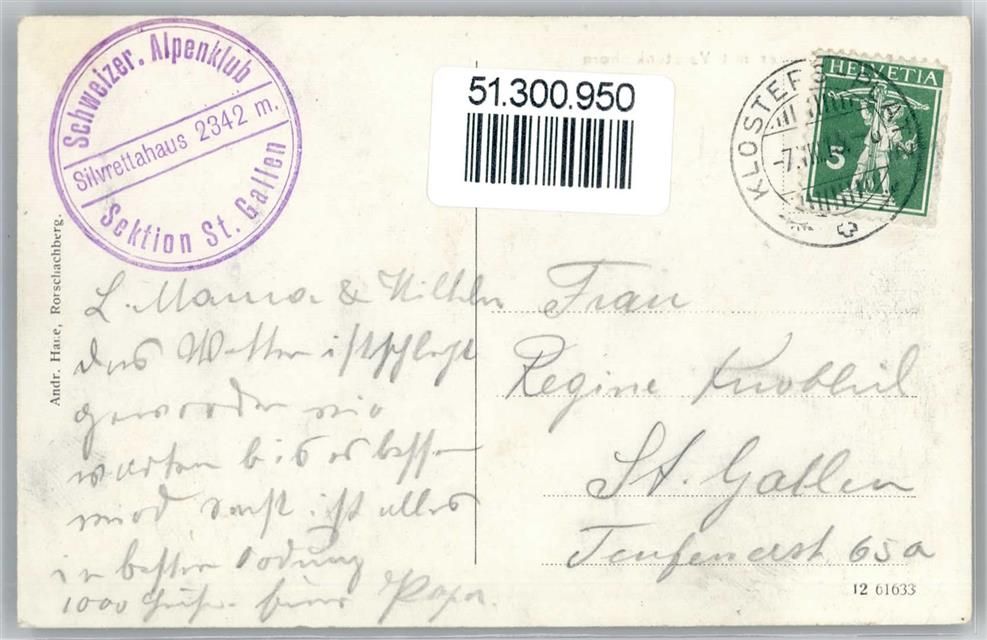 Schweizer. Alpenklub
Silvrettahaus 2342 m.
Sektion St. Gallen
51.300.950
HELVETIA
5
KLOSTERS PLATZ
-7.VII
Andr. Hane, Rorschachberg.
L. Mama & Wilhelm
das Wetter ist schlecht
geworden wir
warten bis es besser
wird sonst ist alles
in bester Ordnung
1000 Grüße Papa.
Frau
Regine
St. Gallen
Teufenerst. 65a
12 61633